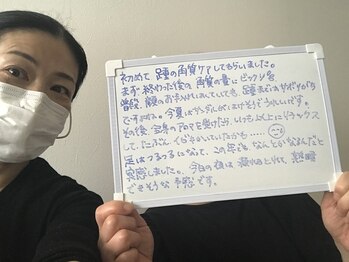 初めて 踵の角質ケアしてもらいました。
まず 終わった後の 角質の量に ビックリ!!
普段、顔のお手入れはしていても 踵まではサボりがち
ですよね。今夏はかかとが出せそうでうれしいです。
その後、全身のアロマを受けたら いつも以上にリラックス
して、たぶん イビキかいていたかも……
足はつるつるになって、この年でも なんとかなるんだと
実感しました。今日の夜は 疲れもとれて、熟睡
できそうな予感です。